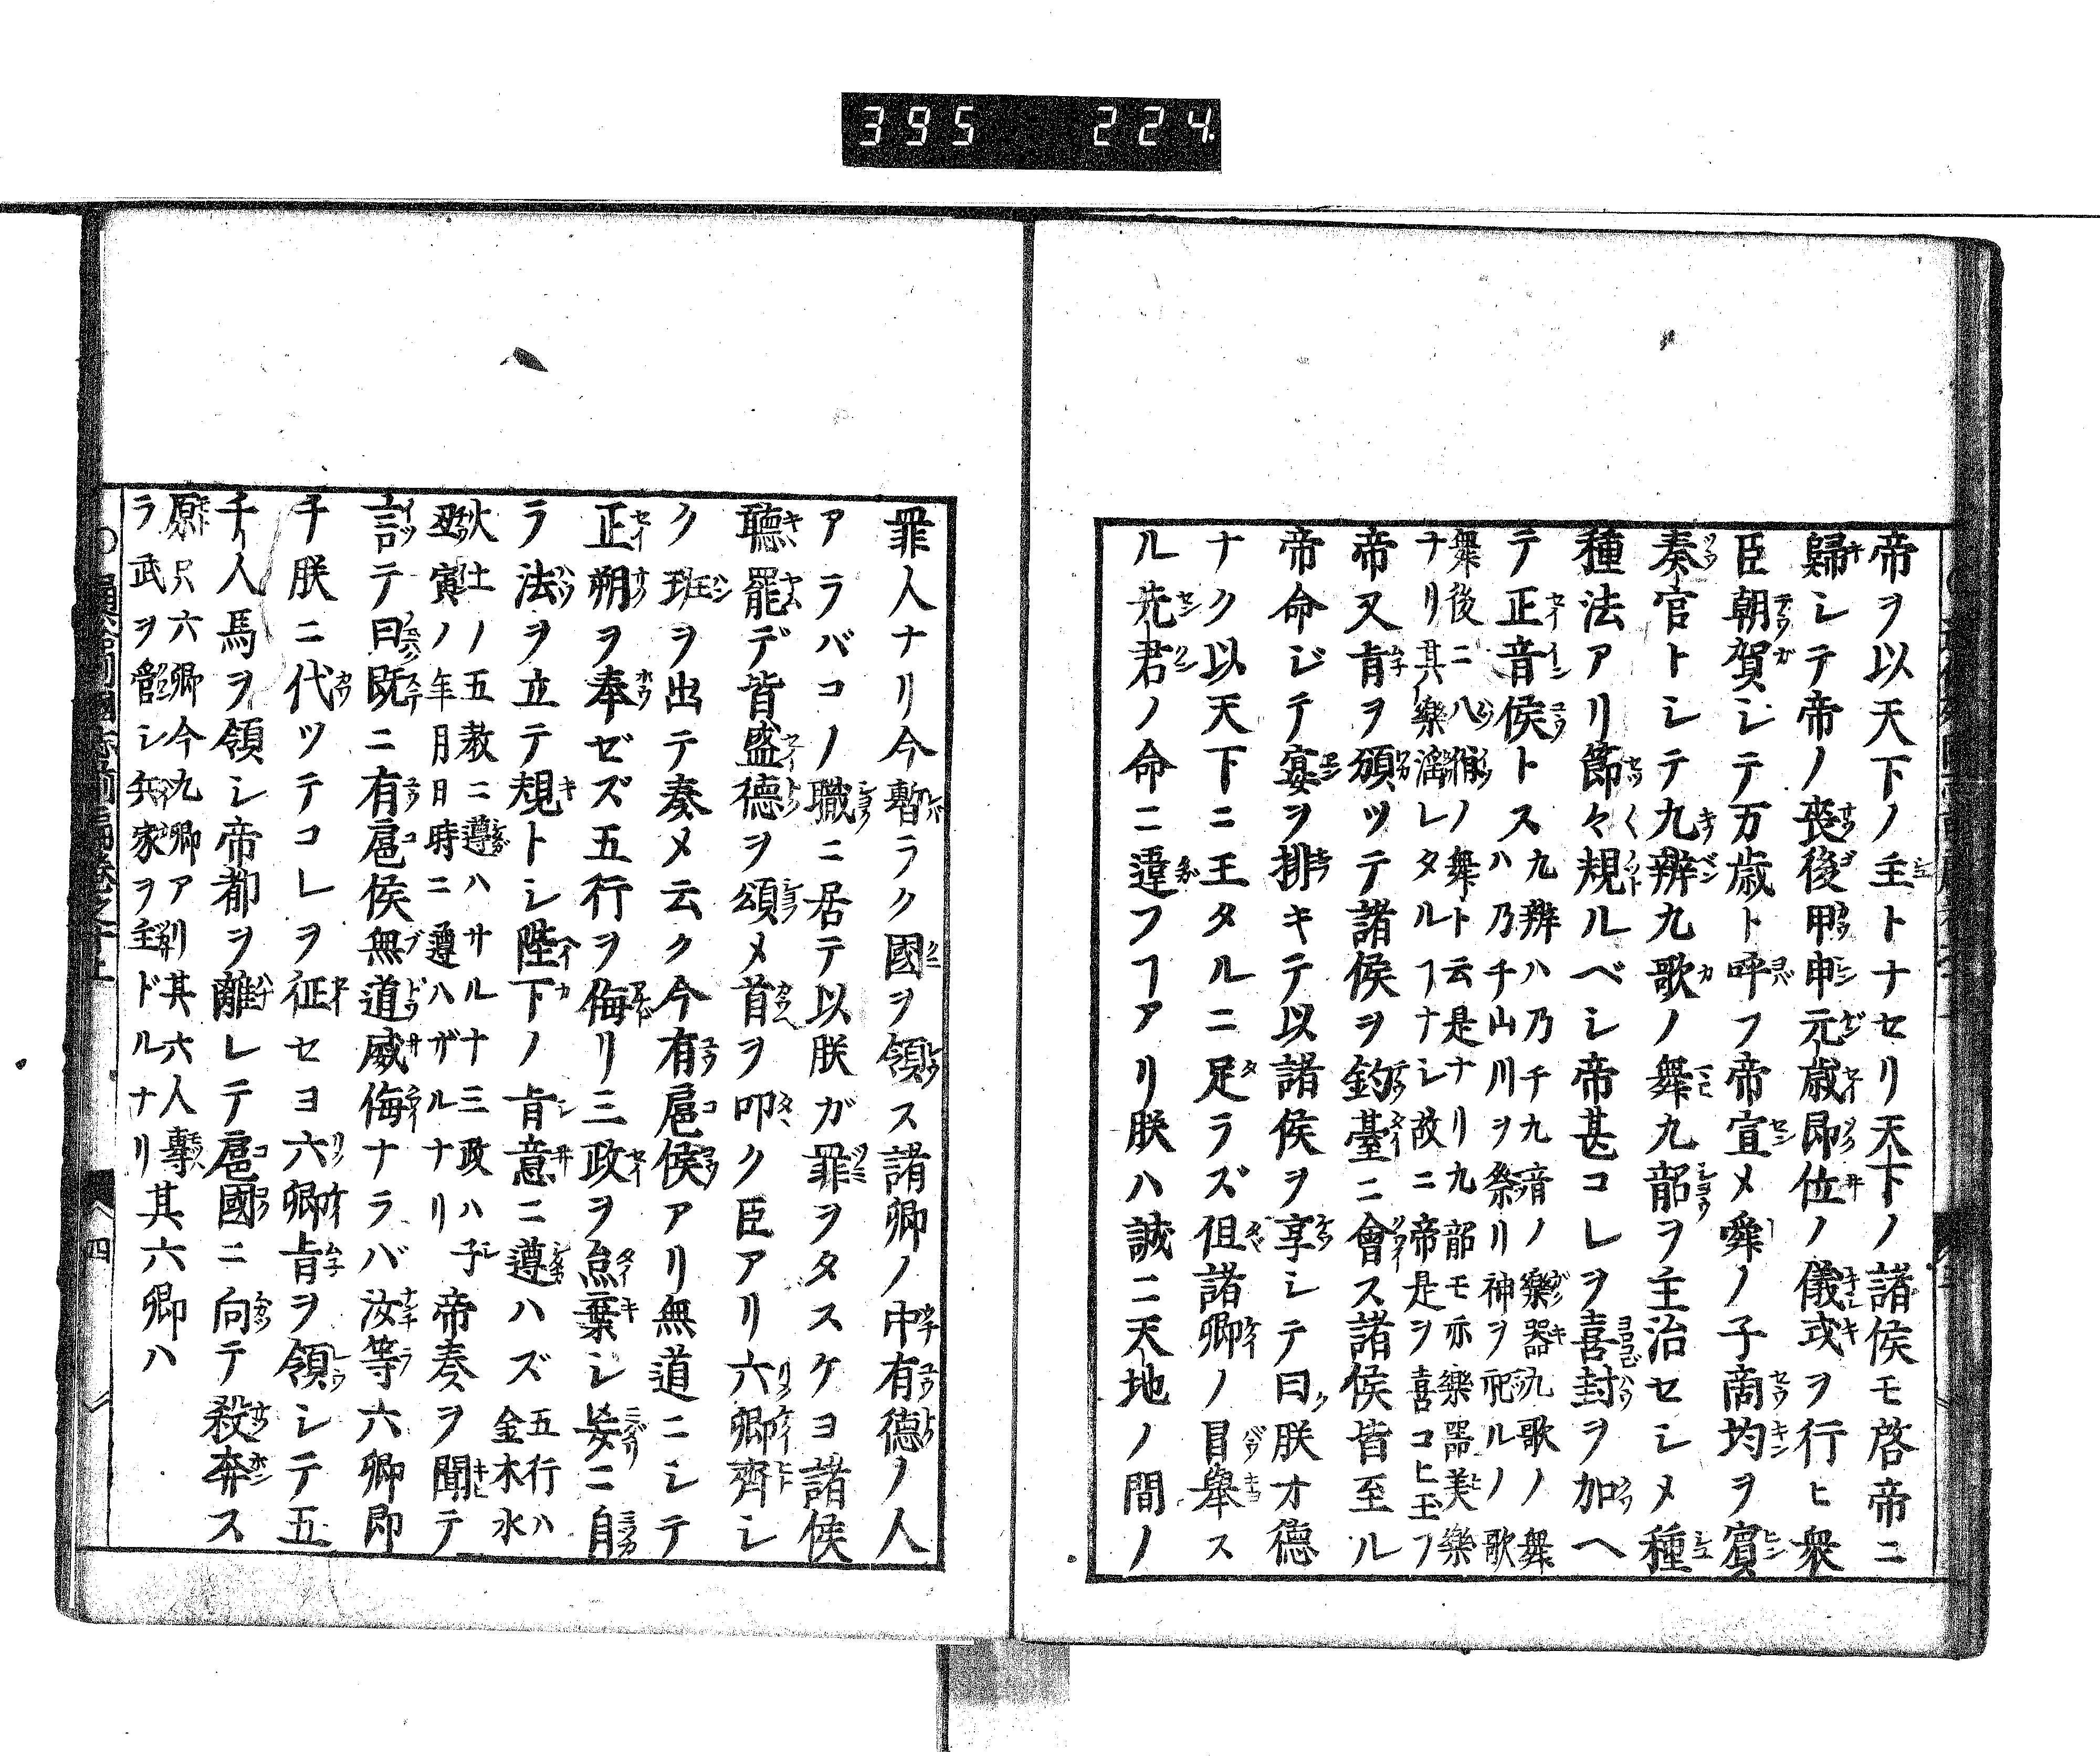 395 224
帝ヲ以天下ノ主トナセリ天下ノ諸侯モ啓帝ニ
歸シテ帝ノ喪後甲申元歳即位ノ儀式ヲ行ヒ衆
臣朝賀シテ万歳ト呼フ帝宣メ舜ノ子商均ヲ賓
奏官トシテ九辨九歌ノ舞九韶ヲ主治セシメ種
種法アリ節々規ルベシ帝甚コレヲ喜封ヲ加ヘ
テ正音侯トス
九辨ハ乃チ九音ノ樂器九歌ノ舞
ハ乃チ山川ヲ祭リ神ヲ祀ルノ歌
舞後ニ八佾ノ舞ト云是ナリ九韶モ亦樂器美樂
ナリ其樂滛レタルヿナシ故ニ帝是ヲ喜コヒ玉フ
帝又肯ヲ頒ツテ諸侯ヲ釣臺ニ會ス諸侯皆至ル
帝命ジテ宴ヲ排キテ以諸侯ヲ享シテ曰朕才德
ナク以天下ニ王タルニ足ラズ但諸卿ノ冒舉ス
ル先君ノ命ニ違フヿアリ朕ハ誠ニ天地ノ間ノ
罪人ナリ今暫ラク國ヲ領ス諸卿ノ中有德ノ人
アラバコノ職ニ居テ以朕ガ罪ヲタスケヨ諸侯
聽罷デ皆盛德ヲ頌メ首ヲ叩ク臣アリ六卿齊シ
ク班ヲ出テ奏メ云ク今有扈侯アリ無道ニシテ
正朔ヲ奉ゼズ五行ヲ侮リ三政ヲ怠棄シ妄ニ自
ラ法ヲ立テ規トシ陛下ノ肯意ニ遵ハズ
五行ハ
金木水
火土ノ五教ニ遵ハサルナ三政ハ子
丑寅ノ年月日時ニ遵ハザルナリ
帝奏ヲ聞テ
言テ曰既ニ有扈侯無道威侮ナラバ汝等六卿即
チ朕ニ代ツテコレヲ征セヨ六卿肯ヲ領シテ五
千人馬ヲ領シ帝都ヲ離レテ扈國ニ向テ殺奔ス
原只六卿今九卿アリ其六人專其六卿ハ
ラ武ヲ管シ兵家ヲ主ドルナリ
四